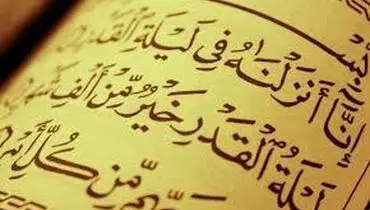 بِسْ
إِنَّا أَنزَلْنَٰهُ فِي لَيْلَةِ الْقَدْرِ
لَيْلَةُ الْقَدْرِ خَيْرٌ مِّنْ أَلْفِ شَهْرٍ
مِّن كُلِّ أَمْرٍ